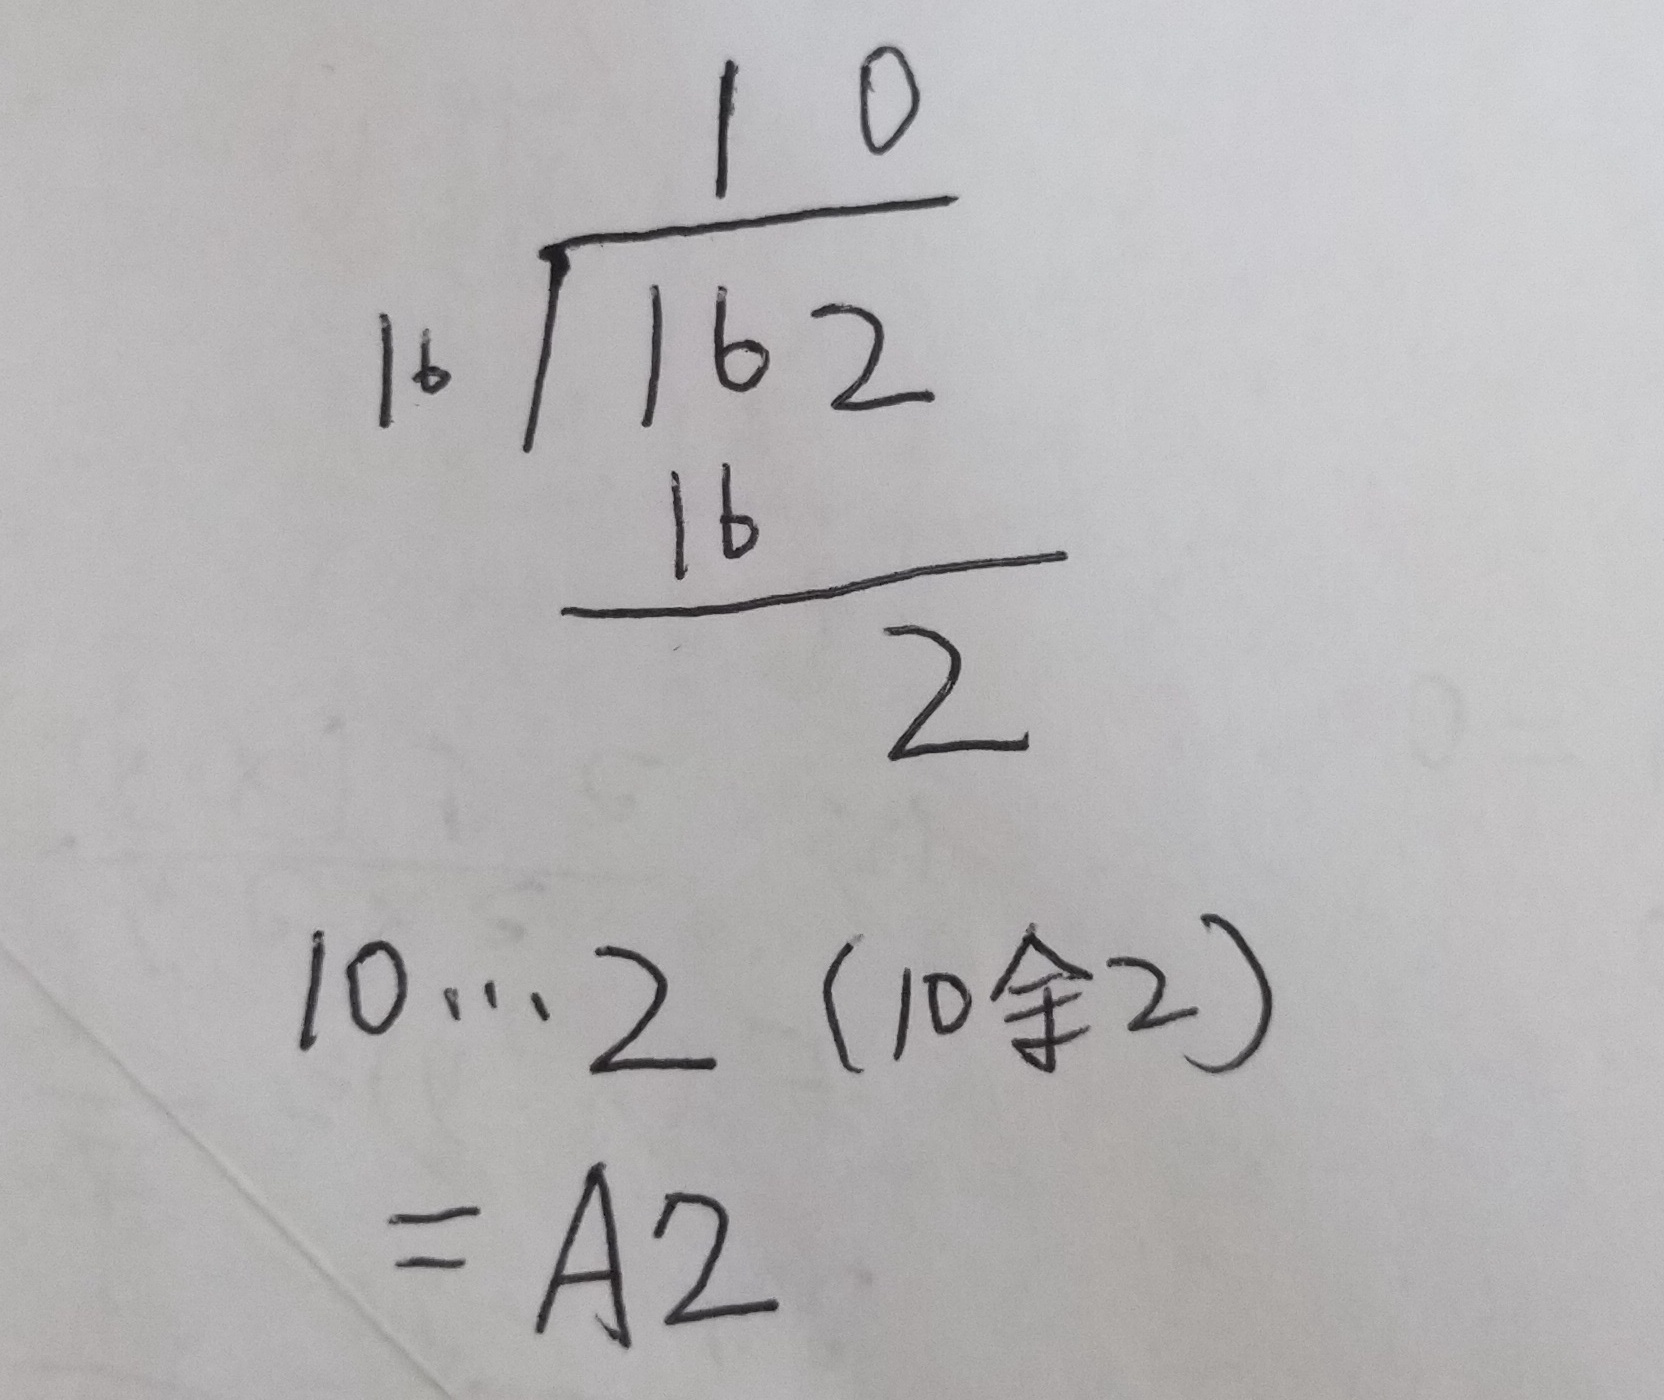 10
16 162
16
2
10...2 (10余2)
=A2